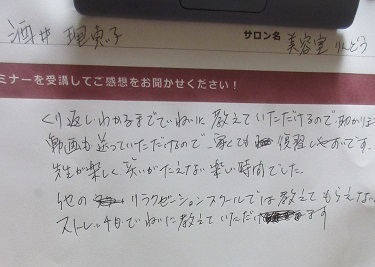 酒井 理恵子 サロン名 美容室 りんどう
ミナーを受講してご感想をお聞かせください！
くり返しわかるまでていねいに教えていただけるので助かりま
動画も送っていただけるので家でも復習しやすいです。
先生が楽しく笑いがたえない楽しい時間でした。
他のリラクゼーションスクールでは教えてもらえない
ストレッチもていねいに教えていただけます